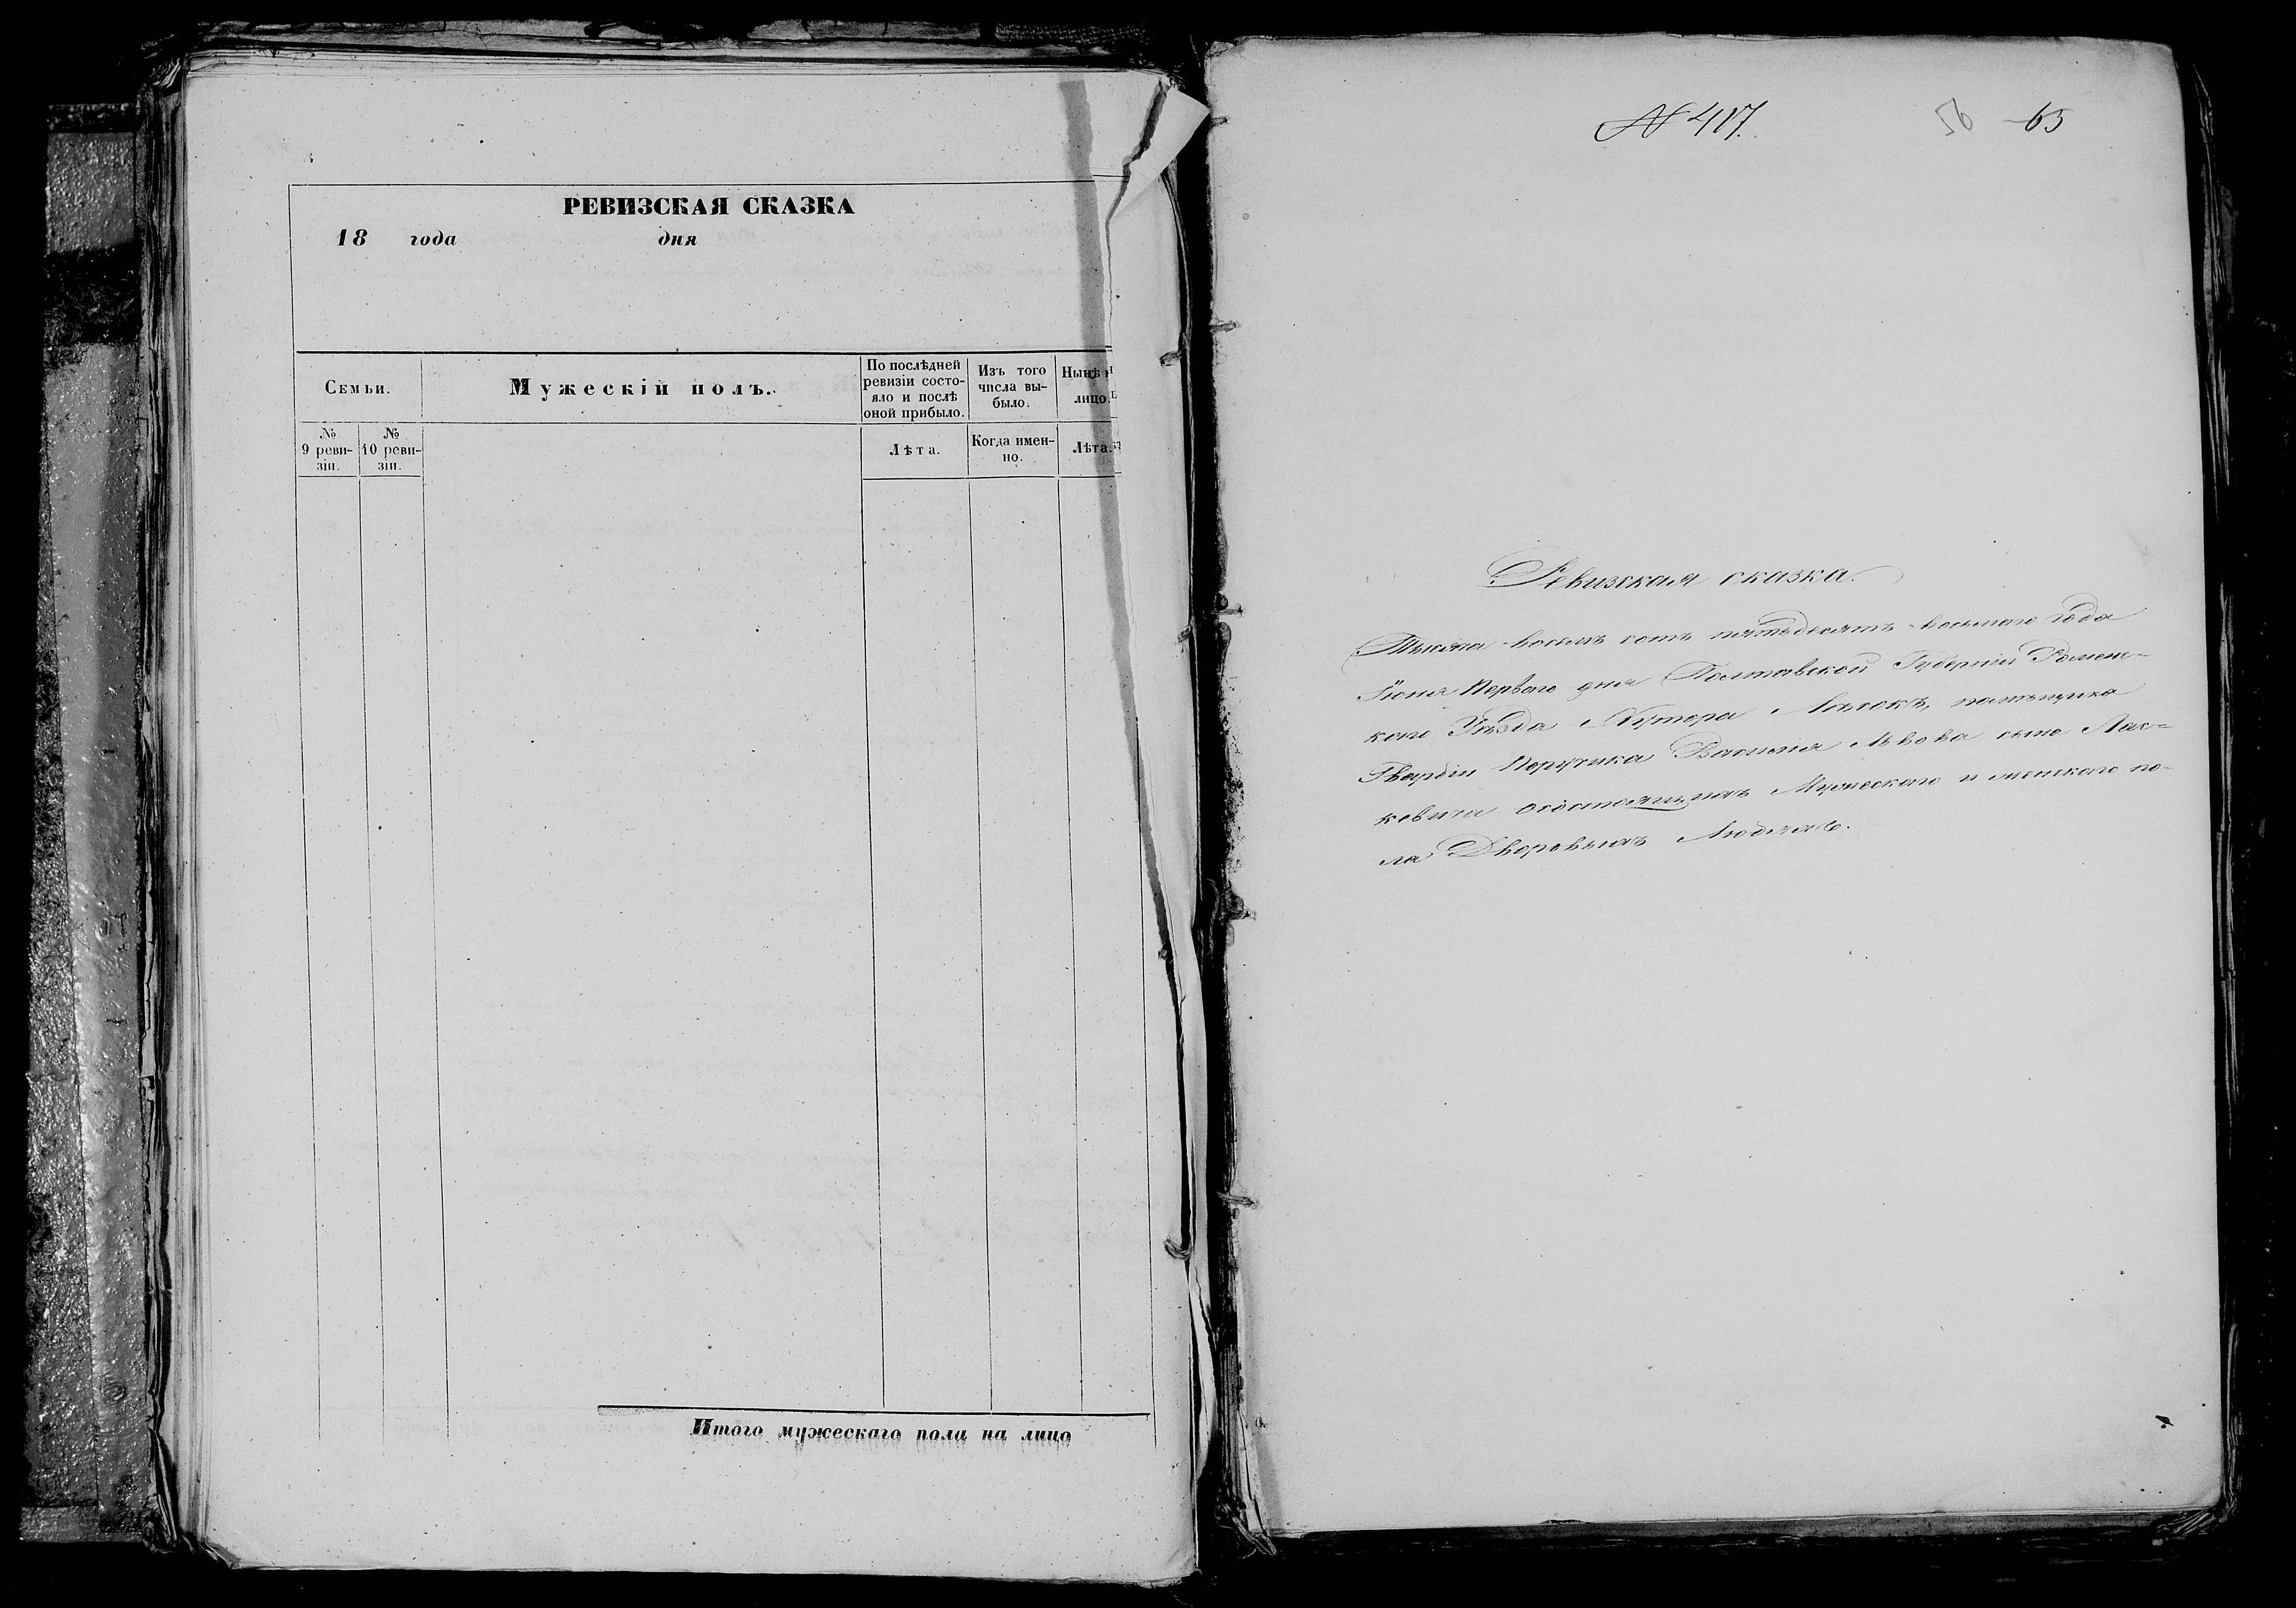 РЕВИЗСКАЯ СКАЗКА
18 года дня
Семьи.
Мужескій полъ.
По послѣдней
ревизіи состо-
яло и послѣ
оной прибыло.
Изъ того
числа вы-
было.
Нынѣ
лицо.
№
9 реви-
зіи.
№
10 реви-
зіи.
Лѣта.
Когда имен-
но.
Лѣта.
Итого мужескаго пола на лицо
№ 417.
56 65
Ревизская сказка.
Тысяча восемь сотъ пятьдесятъ восьмаго года
Іюня Перваго дня Полтавской Губерніи Ромен-
кого Уѣзда Хутора помѣщика
Гвардіи Поручика Василія Львова сына Мас-
ковича о состоящихъ Мужескаго и женскаго по-
ла Дворовыхъ Людяхъ.